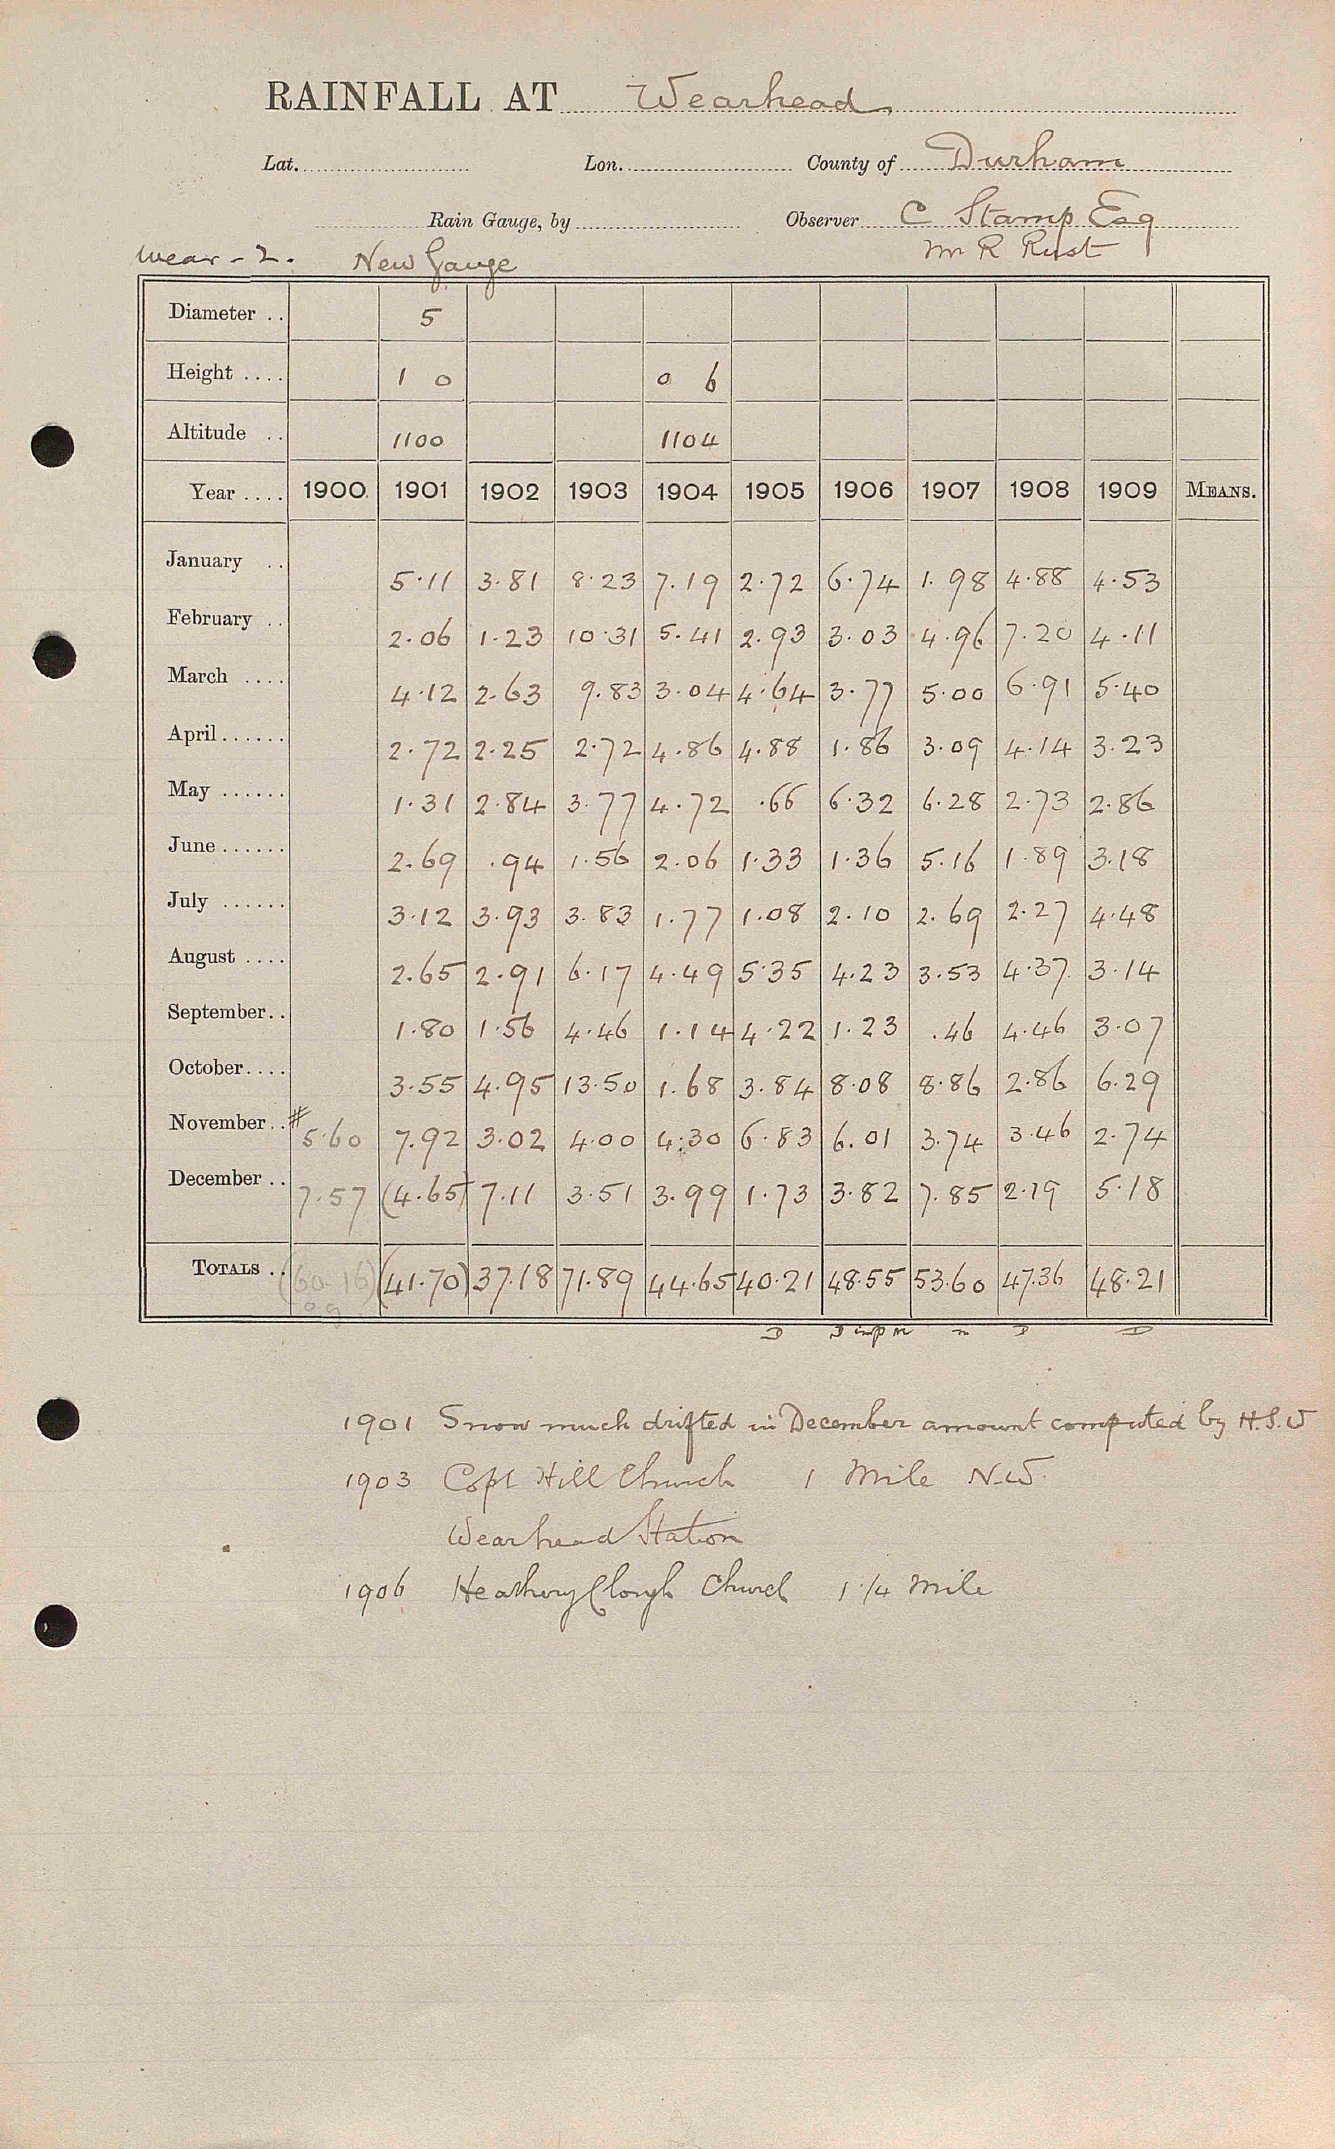 RAINFALL AT Wearhead
Lat. Lon. County of Durham
Rain Gauge, by Observer C Stamp Esq
Mr R Rust
Wear - 2. New Gauge
Diameter .. 5
Height .... 1 0 0 6
Altitude .. 1100 1104
Year .... 1900 1901 1902 1903 1904 1905 1906 1907 1908 1909 MEANS.
January .. 5.11 3.81 8.23 7.19 2.72 6.74 1.98 4.88 4.53
February .. 2.06 1.23 10.31 5.41 2.93 3.03 4.96 7.20 4.11
March .... 4.12 2.63 9.83 3.04 4.64 3.77 5.00 6.91 5.40
April...... 2.72 2.25 2.72 4.86 4.88 1.86 3.09 4.14 3.23
May ...... 1.31 2.84 3.77 4.72 .66 6.32 6.28 2.73 2.86
June ...... 2.69 .94 1.56 2.06 1.33 1.36 5.16 1.89 3.18
July ...... 3.12 3.93 3.83 1.77 1.08 2.10 2.69 2.27 4.48
August .... 2.65 2.91 6.17 4.49 5.35 4.23 3.53 4.37 3.14
September.. 1.80 1.56 4.46 1.14 4.22 1.23 .46 4.46 3.07
October.... 3.55 4.95 13.50 1.68 3.84 8.08 8.86 2.86 6.29
November.. # 5.60 7.92 3.02 4.00 4.30 6.83 6.01 3.74 3.46 2.74
December .. 7.57 (4.65) 7.11 3.51 3.99 1.73 3.82 7.85 2.19 5.18
TOTALS .. (60.16) (41.70) 37.18 71.89 44.65 40.21 48.55 53.60 47.36 48.21
D D D D
1901 Snow much drifted in December amount computed by H.S.W
1903 Copt Hill Church 1 Mile N.W.
Wearhead Station
1906 Heathery Clough Church 1 1/4 Mile